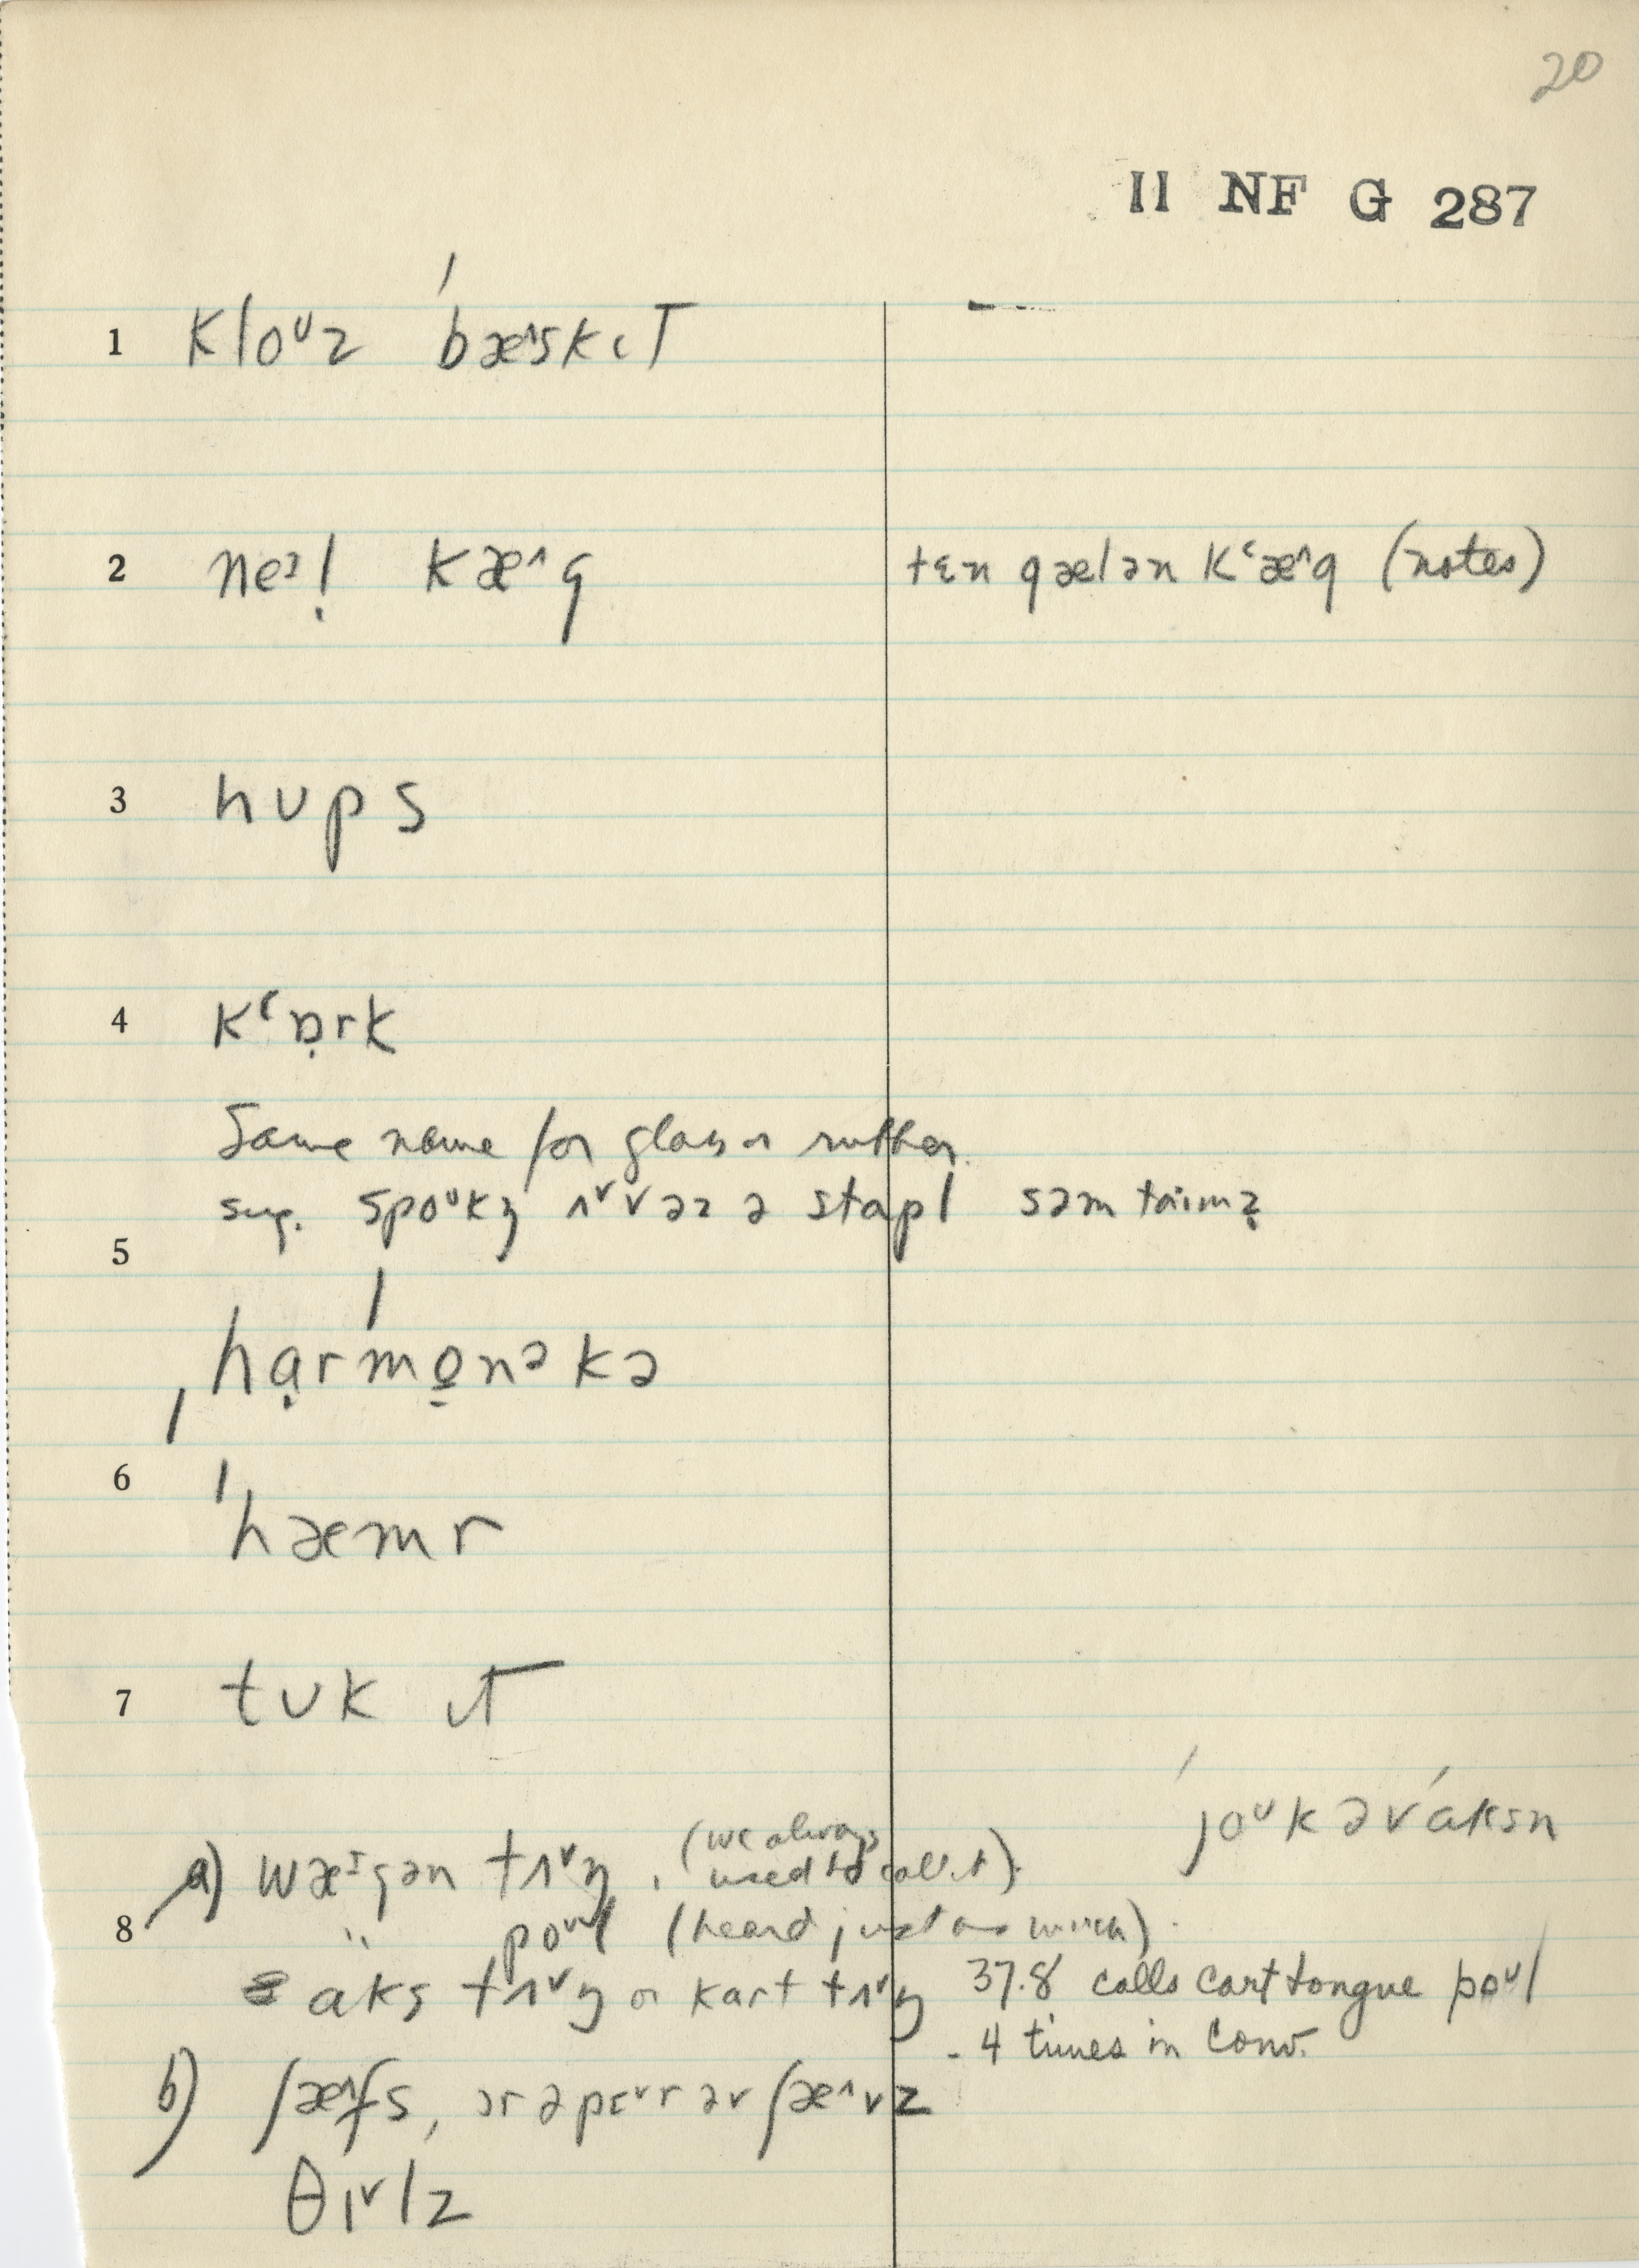 20
II NF G 287
1 kloᵘz ˈbæ^skɩt
2 neᶦl̩ kæ^g
tɛn gælən kʿæ^g (notes)
3 hʊps
4 kʿɒ̣rk
Same name for glass or rubber.
sug. spoᵘkŋ ʌᵛv əz ə stapl səm taimz̥
5
ˌhạrˈmo̱nᵊkə
6 ˈhæmr
7 tʊk ɩt
ˈjoᵘkəvˈáksn
a) wæᶦgən tʌᵛŋ. (we always
used to call it).
8 " poᵘl (heard just as much).
aks tʌᵛŋ or kart tʌᵛŋ
37.8 calls cart tongue poᵘl
- 4 times in conv.
b) ʃæ^fs, ər ə pɛᵛr əv ʃæ^vz
θɩᵛlz